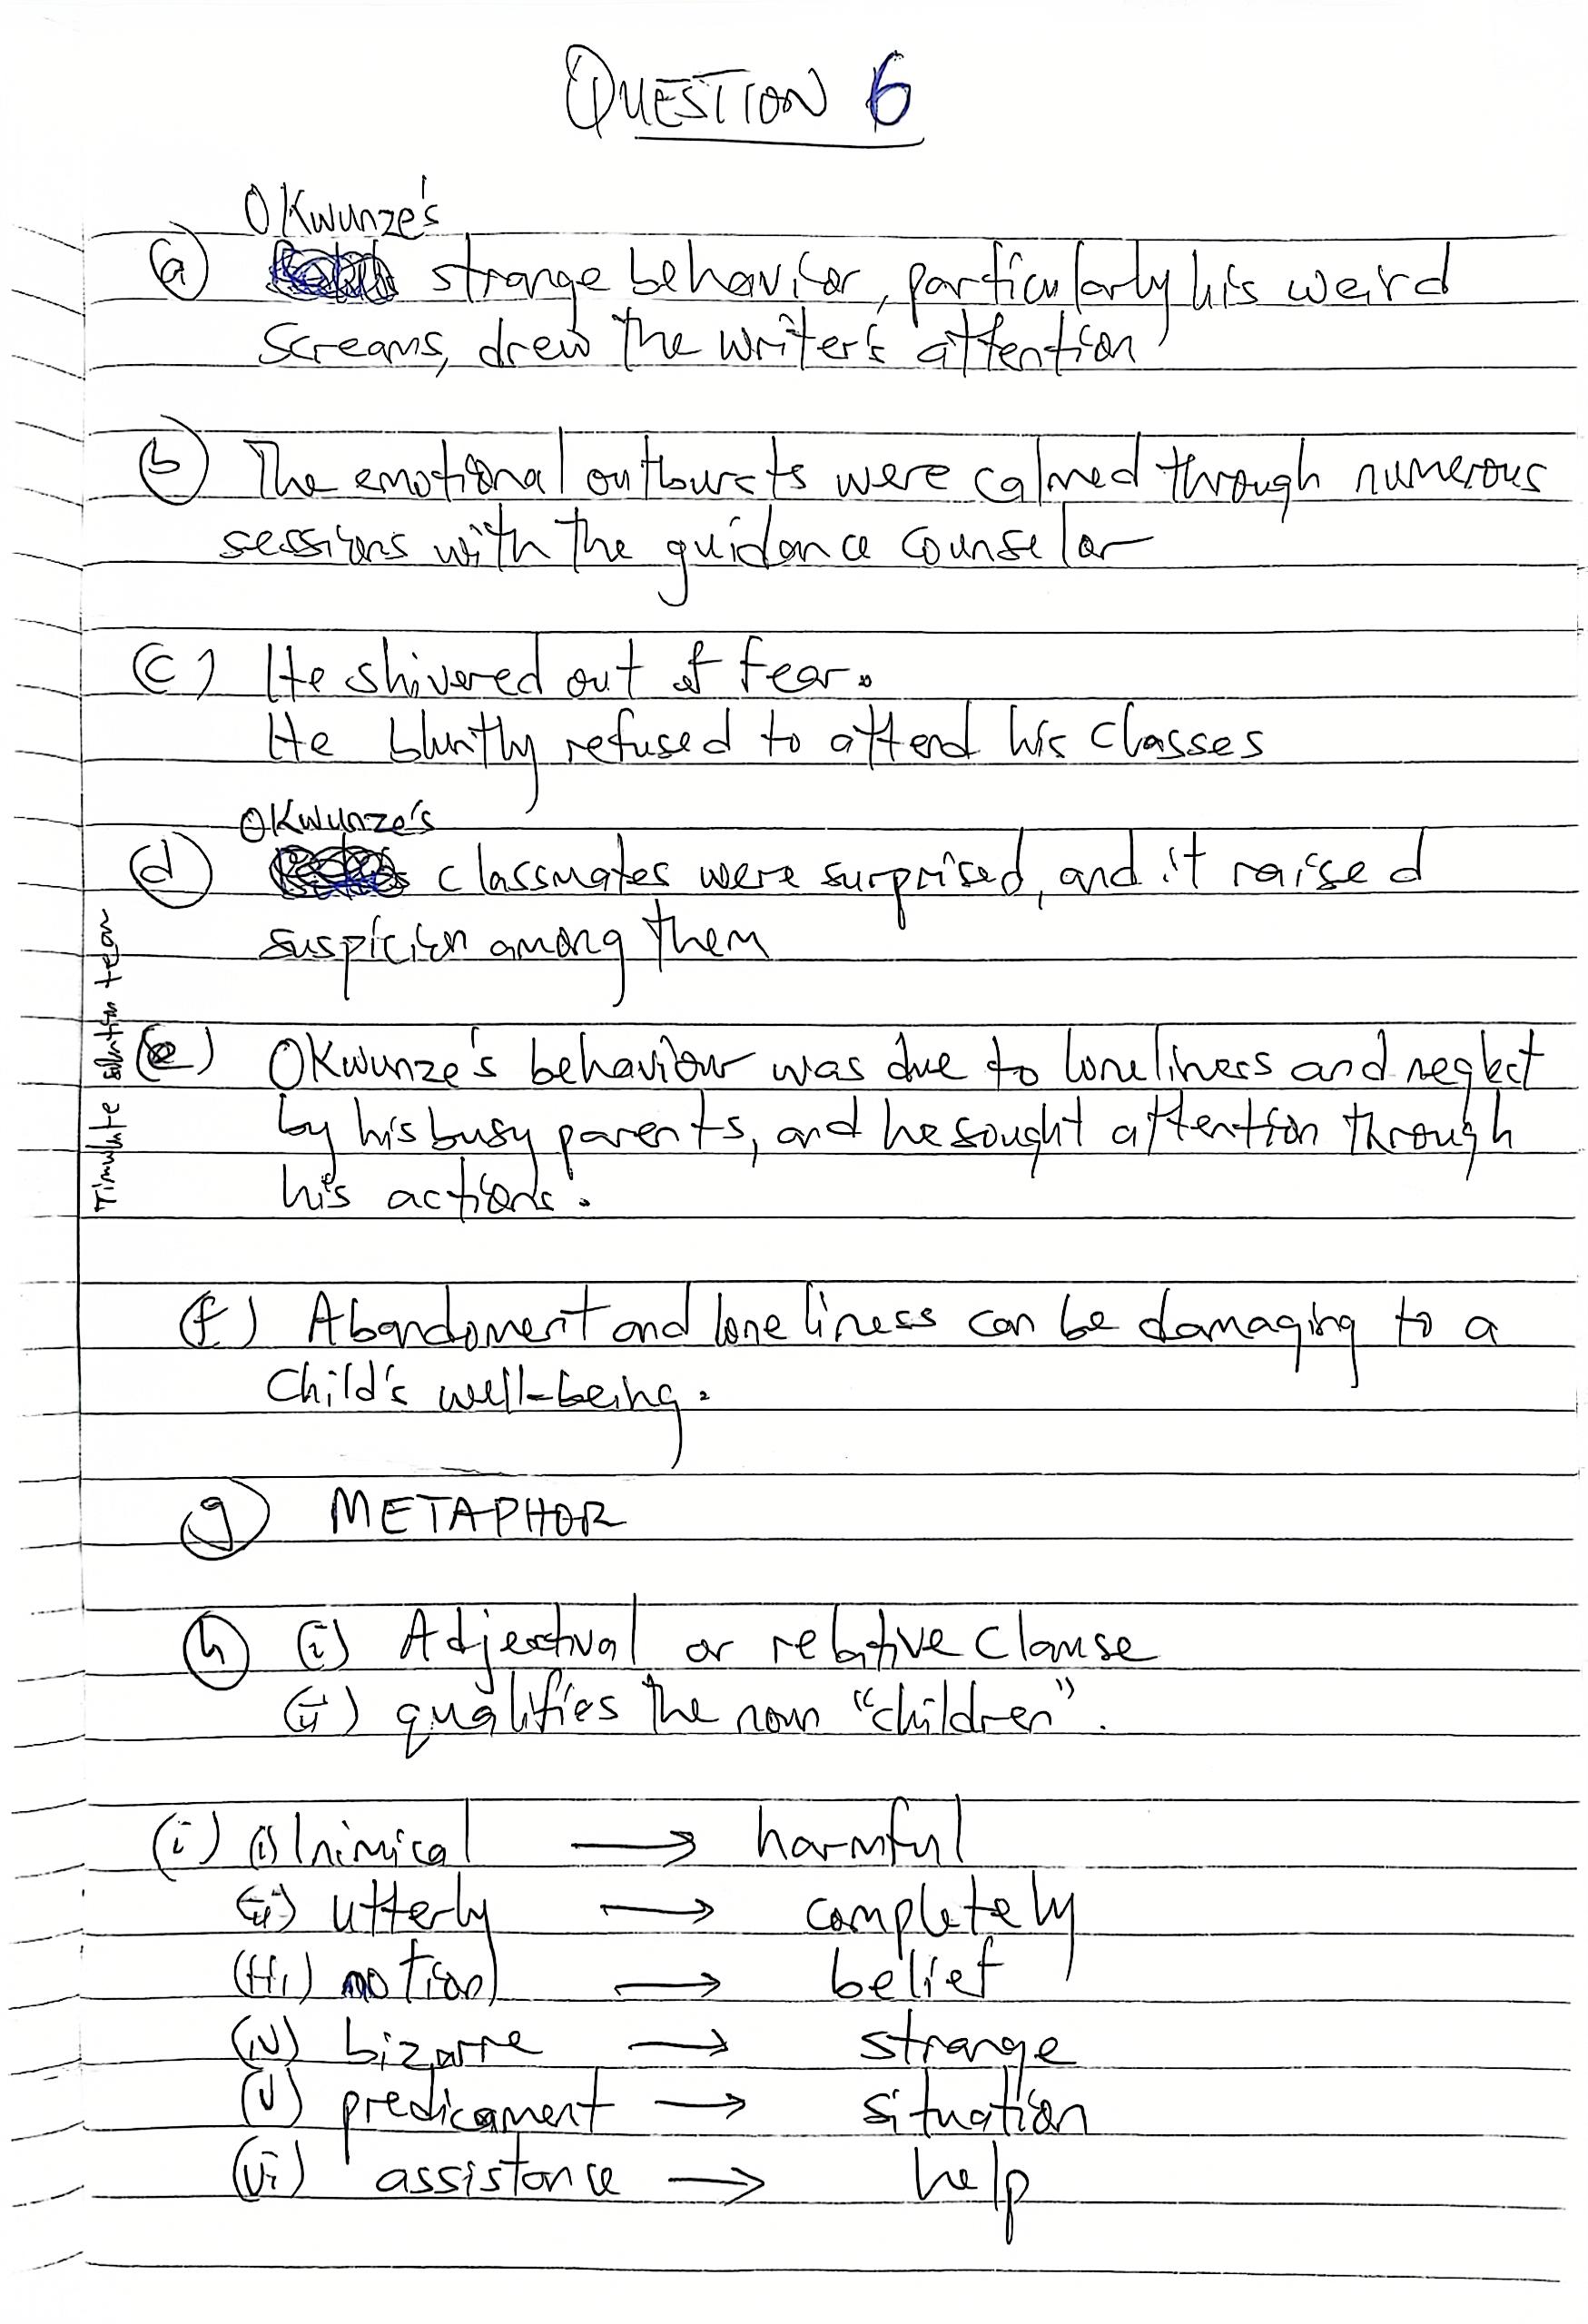 QUESTION 6
Okwunze's
(a) strange behavior, particularly his weird
screams, drew the writer's attention
(b) The emotional outbursts were calmed through numerous
sessions with the guidance counselor
(c) He shivered out of fear.
He bluntly refused to attend his classes
Okwunze's
(d) classmates were surprised, and it raised
suspicion among them
(e) Okwunze's behaviour was due to loneliness and neglect
by his busy parents, and he sought attention through
his actions.
(f) Abandoment and loneliness can be damaging to a
child's well-being.
(g) METAPHOR
(h) (i) Adjectival or relative clause
(ii) qualifies the noun "children".
(i) (i) Inimical → harmful
(ii) utterly → completely
(iii) notion → belief
(iv) bizarre → strange
(v) predicament → situation
(vi) assistance → help
solution team